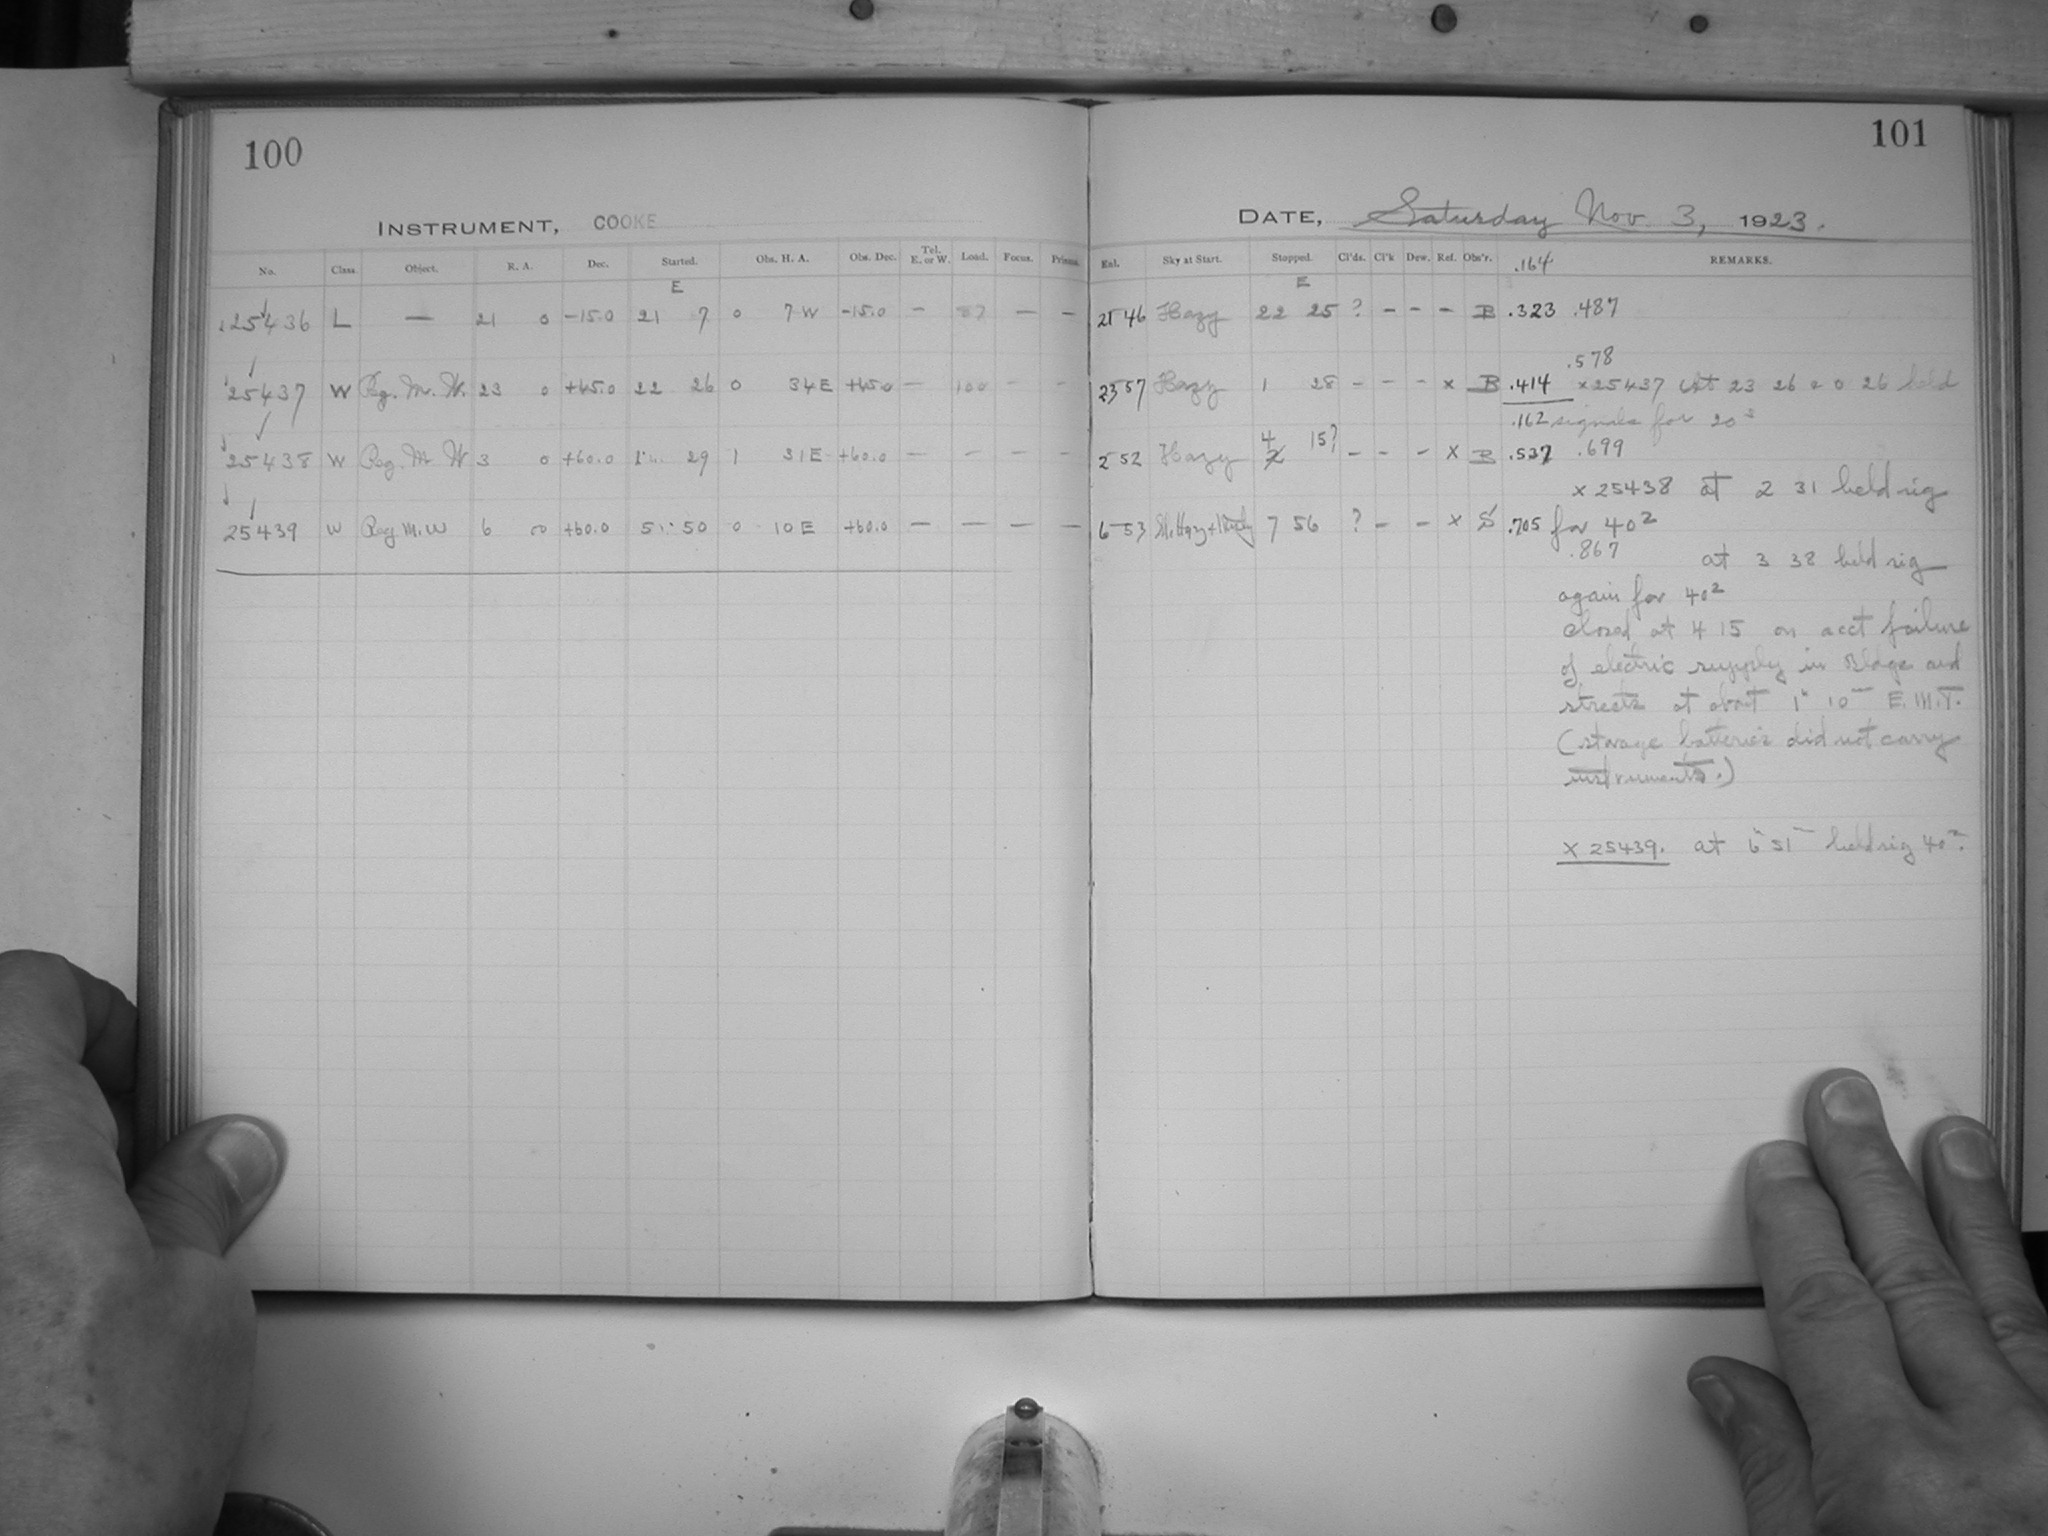 100
INSTRUMENT, COOKE
No. Class. Object. R. A. Dec. Started. Obs. H. A. Obs. Dec. Tel. E. or W. Load. Focus. Prisms.
E
25436 L — 21 0 -15.0 21 7 0 7 W -15.0 — 87 — —
25437 W Reg. M. W. 23 0 +45.0 22 26 0 34 E +45.0 — 100 - -
25438 W Reg. M W 3 0 +60.0 1 29 1 31 E +60.0 — — — —
25439 W Reg M.W 6 00 +60.0 5 50 0 10 E +60.0 — — — —
101
DATE, Saturday Nov. 3, 1923.
Exl. Sky at Start. Stopped. Cl'ds. Cl'k Dew. Ref. Obs'r. .164 REMARKS.
E
21 46 Hazy 22 25 ? - - - B .323 .487
.578
23 57 Hazy 1 28 - - - x B .414 x25437 At 23 26 & 0 26 held
.162 signals for 20 s
2 52 Hazy 4 15? - - - x B .537 .699
x 25438 at 2 31 held sig
6 53 7 56 ? - - x S .705 for 40 s
.867 at 3 38 held sig
again for 40 s
closed at 4 15 on acct failure
of electric supply in Bldgs and
streets at about 1h 10m E.M.T.
(storage batteries did not carry
instruments.)
x 25439. at 6h 51m held sig 40 s.